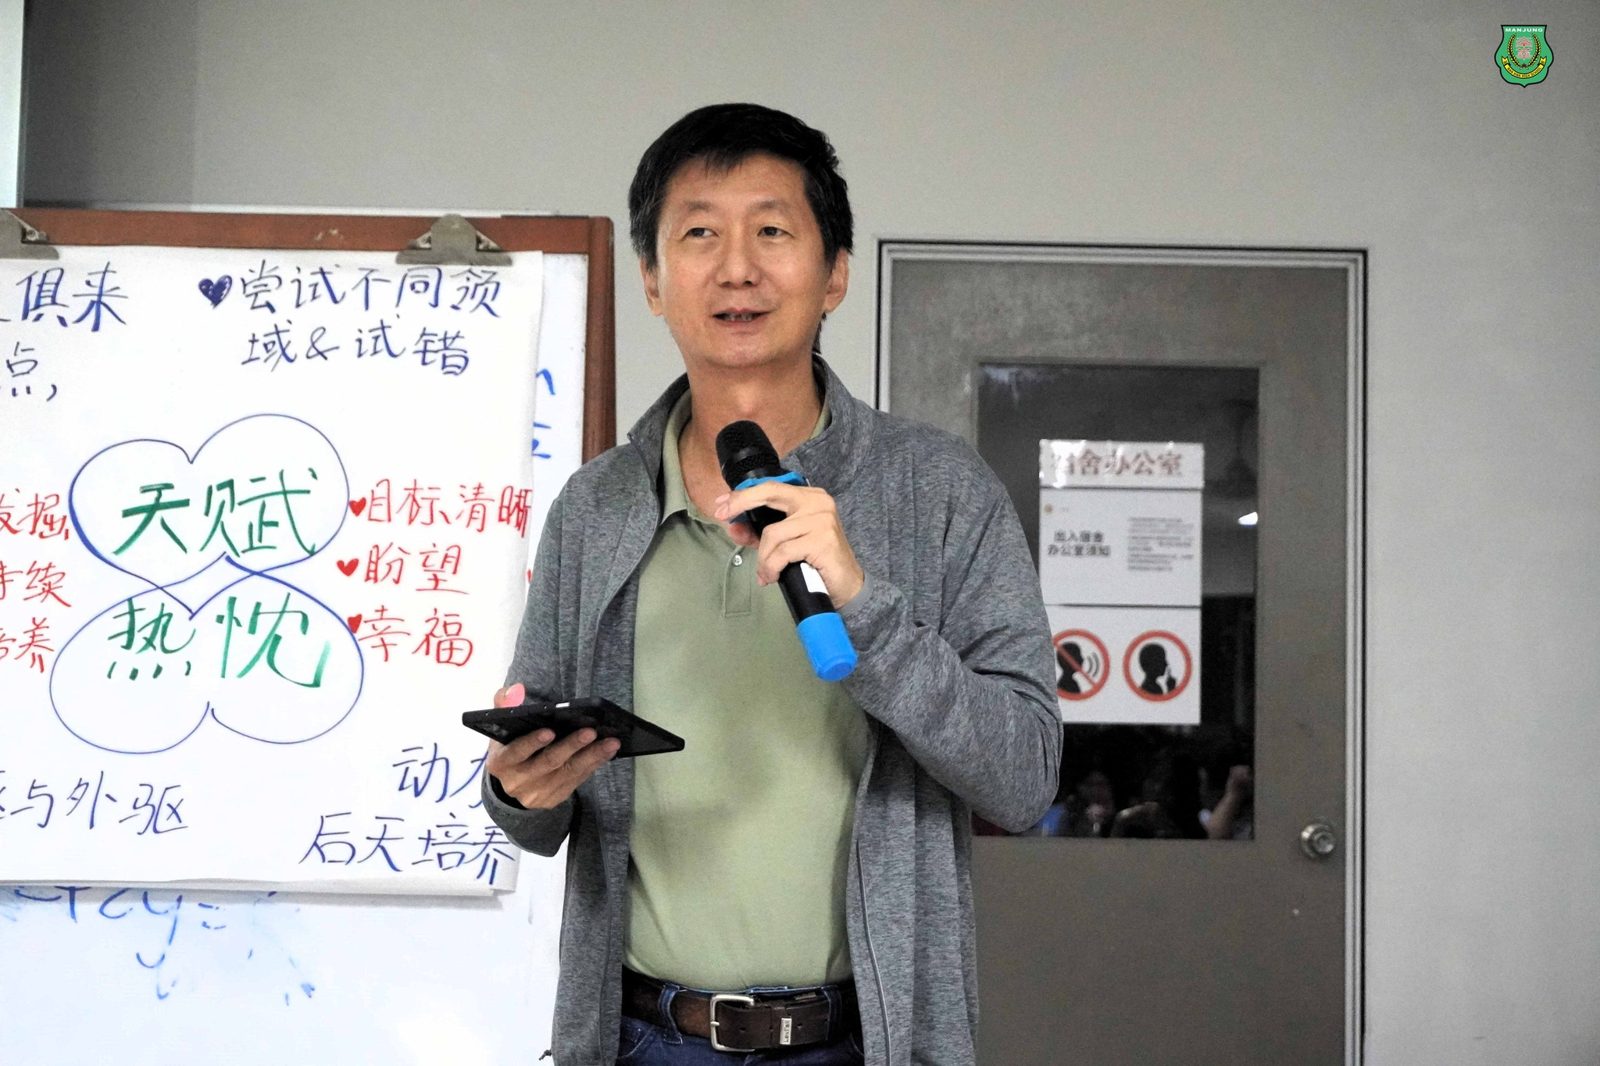 俱来
点,
尝试不同领
域&试错
天赋
热忱
发掘
持续
培养
目标清晰
盼望
幸福
与外驱
动力
后天培养
宿舍办公室
出入宿舍
办公室须知
MANJUNG